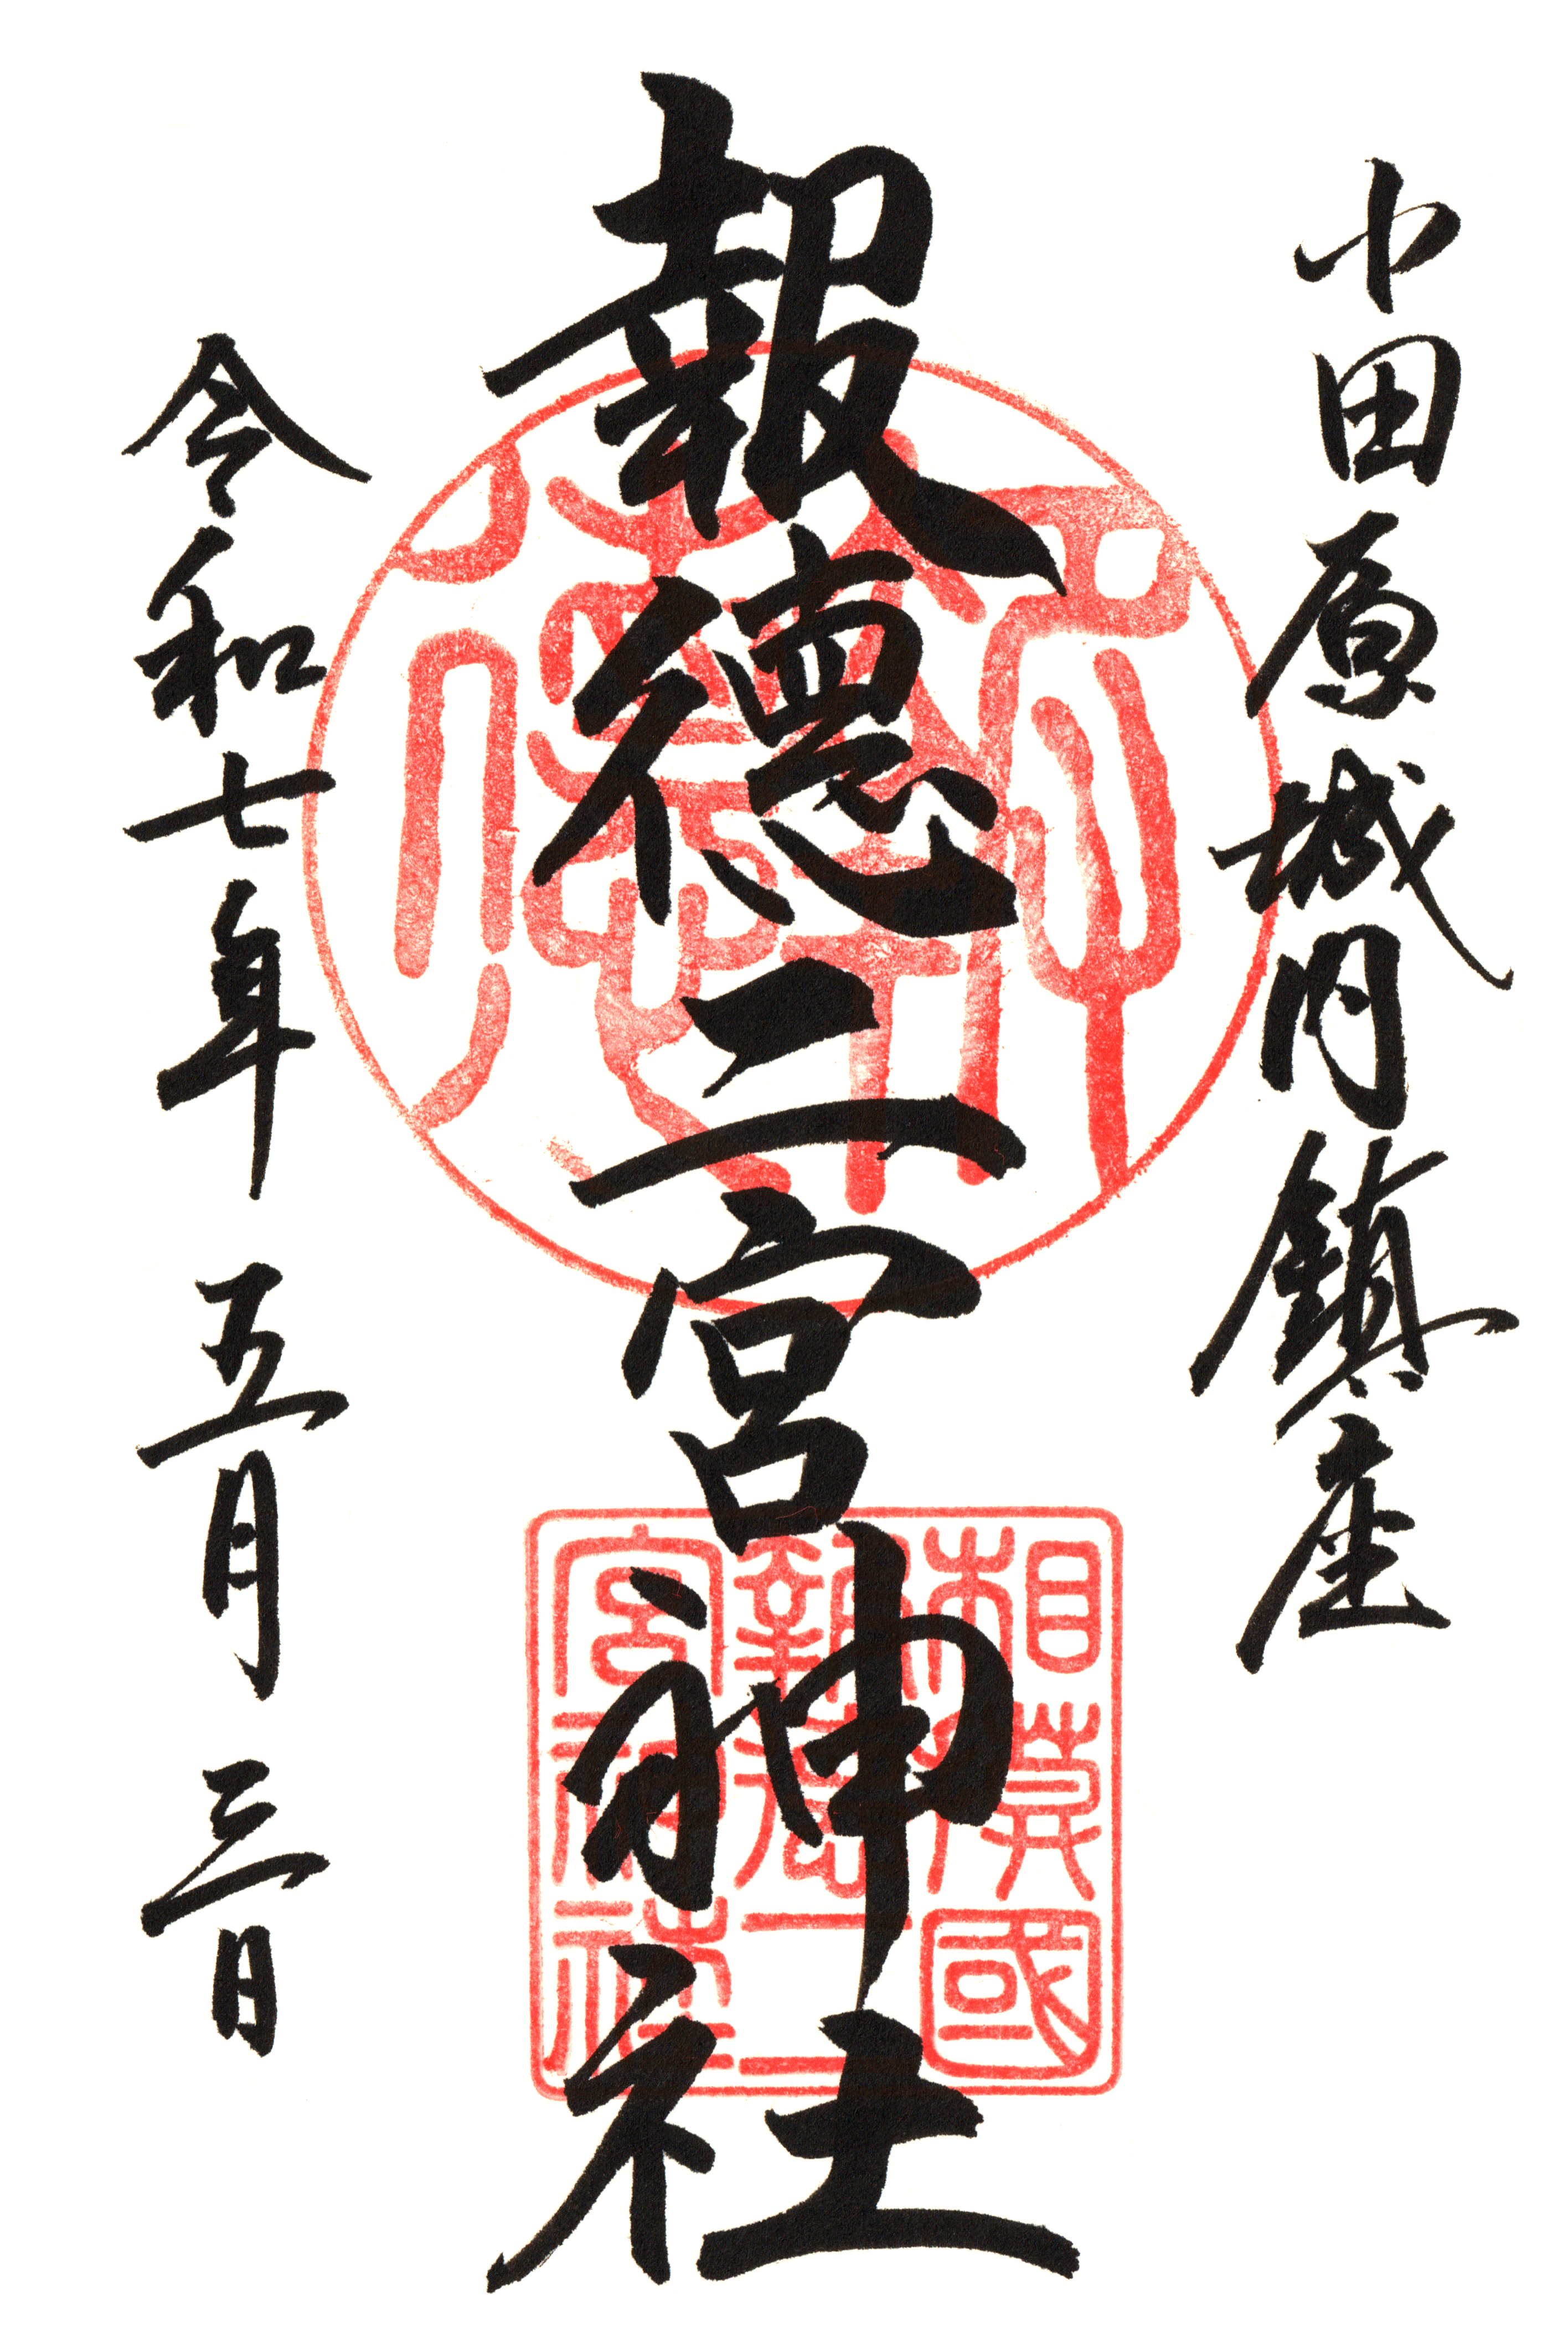 小田原城内鎮座
報徳二宮神社
令和七年 五月 三日
相模國
報徳二
宮神社